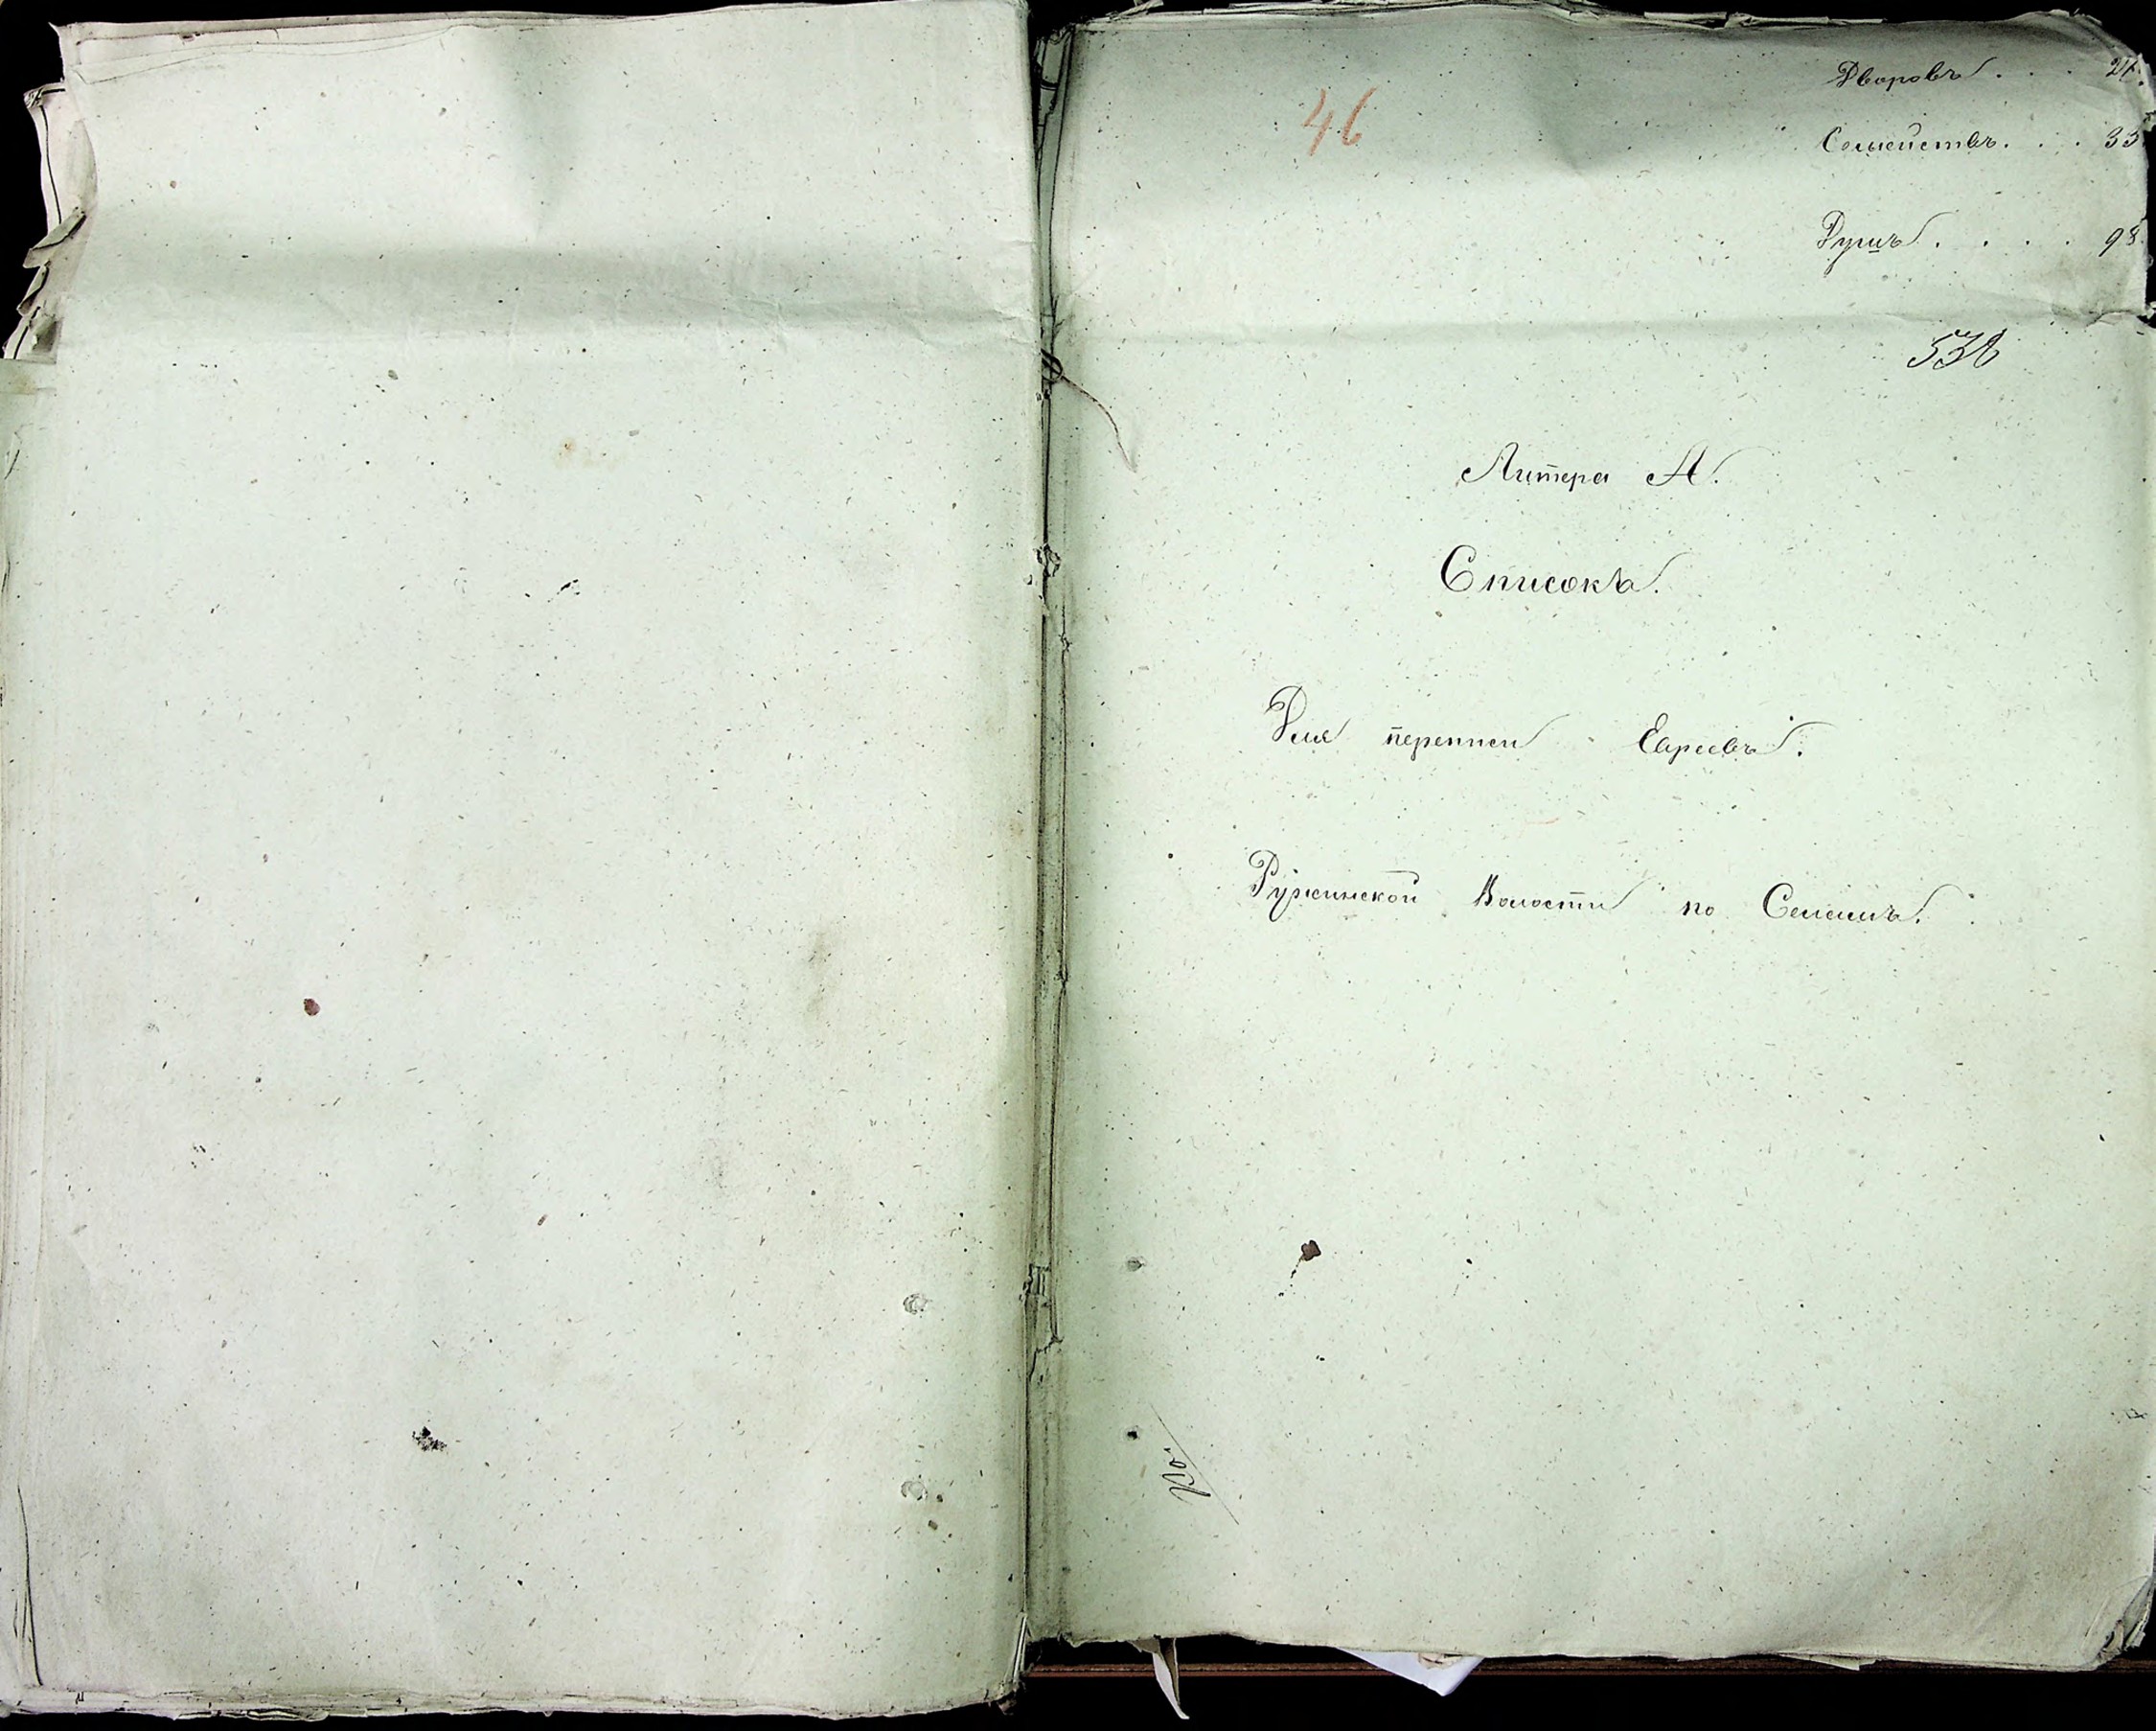 Дворовъ . . . 24.
46
Семействъ. . . 33
Душъ . . . . 98.
536
Литера А.
Списокъ.
Для переписи Евреевъ.
Ружинской Волости по Селамъ.